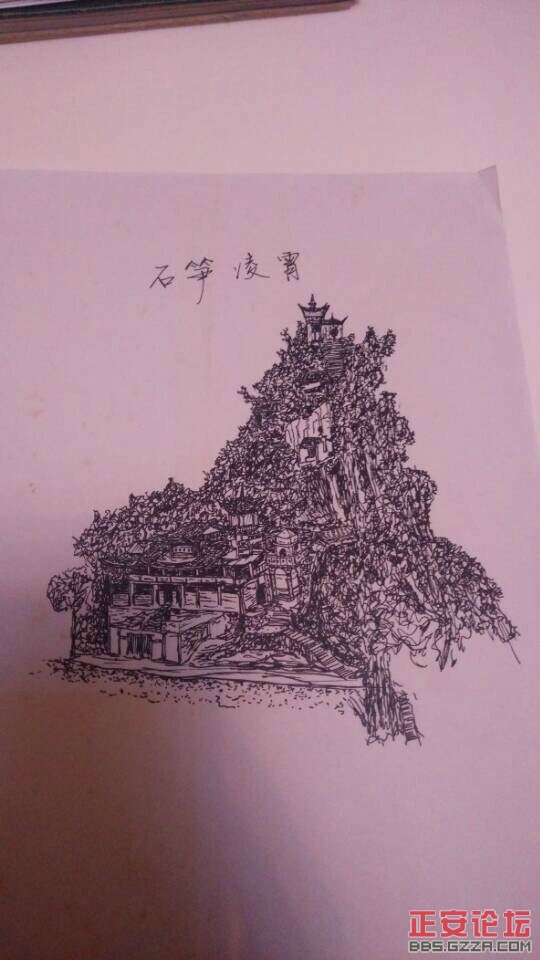 石笋凌霄
正安论坛
BBS.GZZA.COM